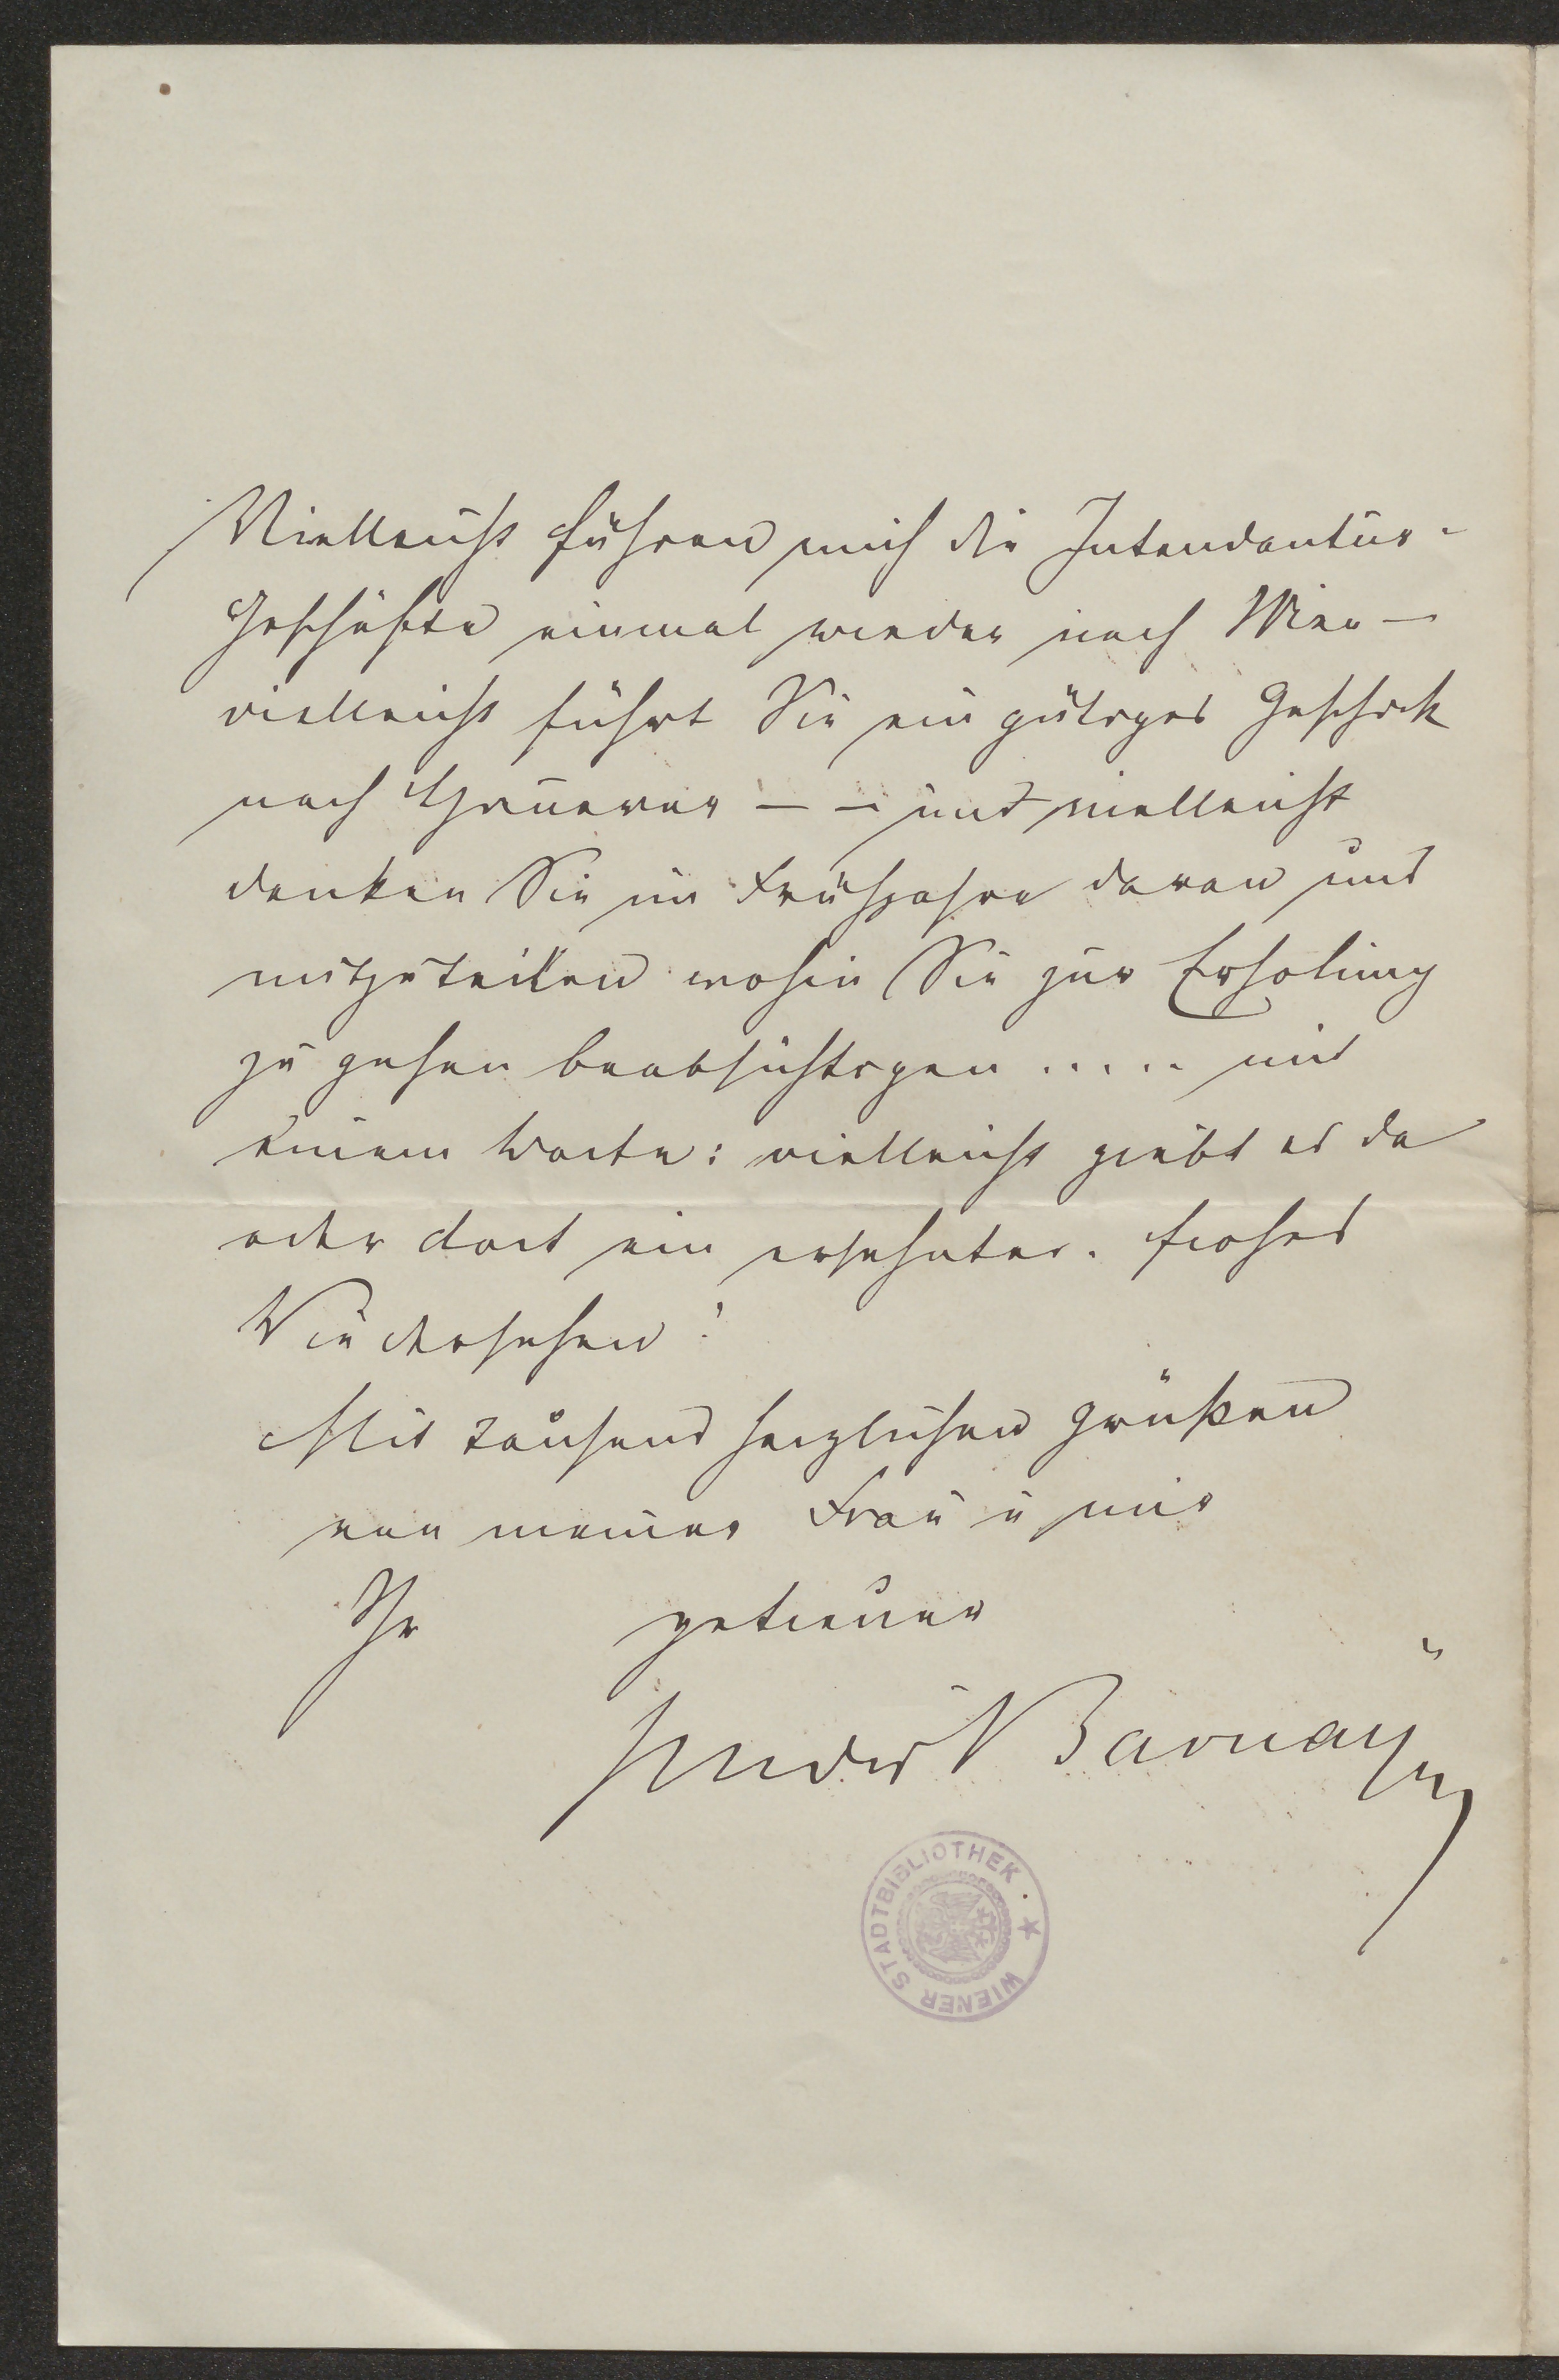 Vielleicht führen mich die Intendantur-
Geschäfte einmal wieder nach Wien —
vielleicht führt Sie ein gütiges Geschick
nach Hannover — — und vielleicht
denken Sie im Frühjahre daran uns
mitzuteilen wohin Sie zur Erholung
zu gehen beabsichtigen ..... mit
einem Worte: vielleicht giebt es da
oder dort ein ersehntes. frohes
Wiedersehen!
Mit tausend herzlichen Grüßen
von meiner Frau u mir
Ihr getreuer
Ludwig Barnay
WIENER STADTBIBLIOTHEK